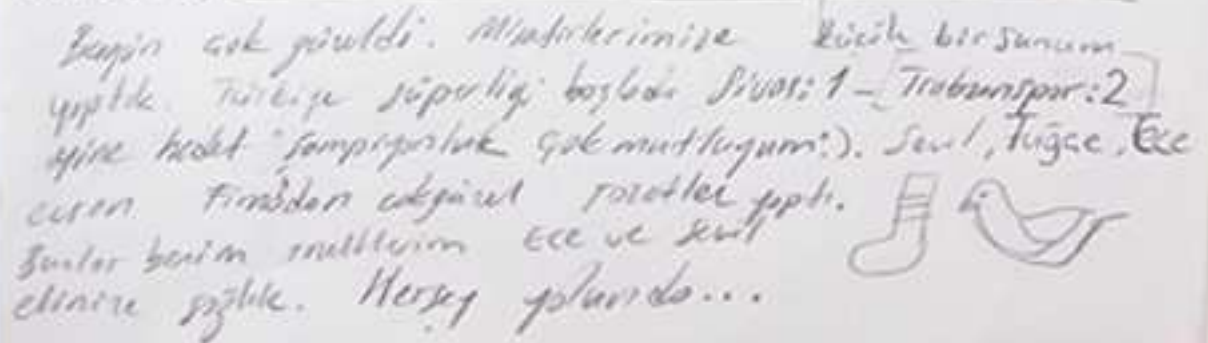 Bugün çok güzeldi. Misafirlerimize küçük bir sunum
yaptık. Türkiye süperligi başladı Sivas:1 - Trabzonspor:2
yine hedef şampiyonluk çok mutluyum:). Sevil, Tuğçe, Ece
ecsen Fimodan çokgüzel rozetler yaptı.
Bunlar benim Ece ve Sevil
elinize sağlık. Herşey yolunda...